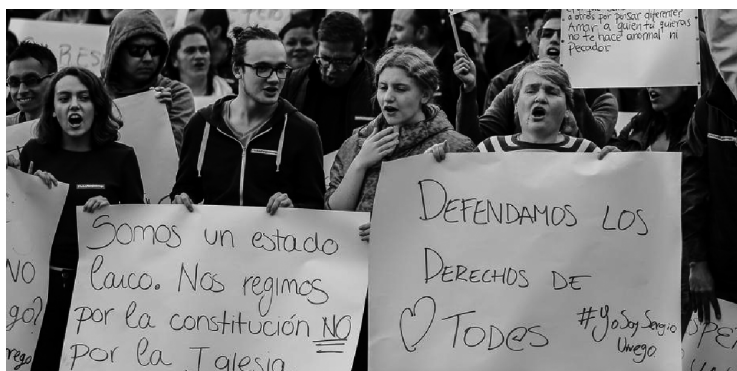 a otros por pensar diferente
Amar a quien tu quieras
no te hace anormal ni
Pecador
RES
Somos un estado
laico. Nos regimos
por la constitución NO
por la Iglesia
DEFENDAMOS LOS
DERECHOS DE
TOD@S
#YoSoySergio
Urrego
NO
go?
rrego